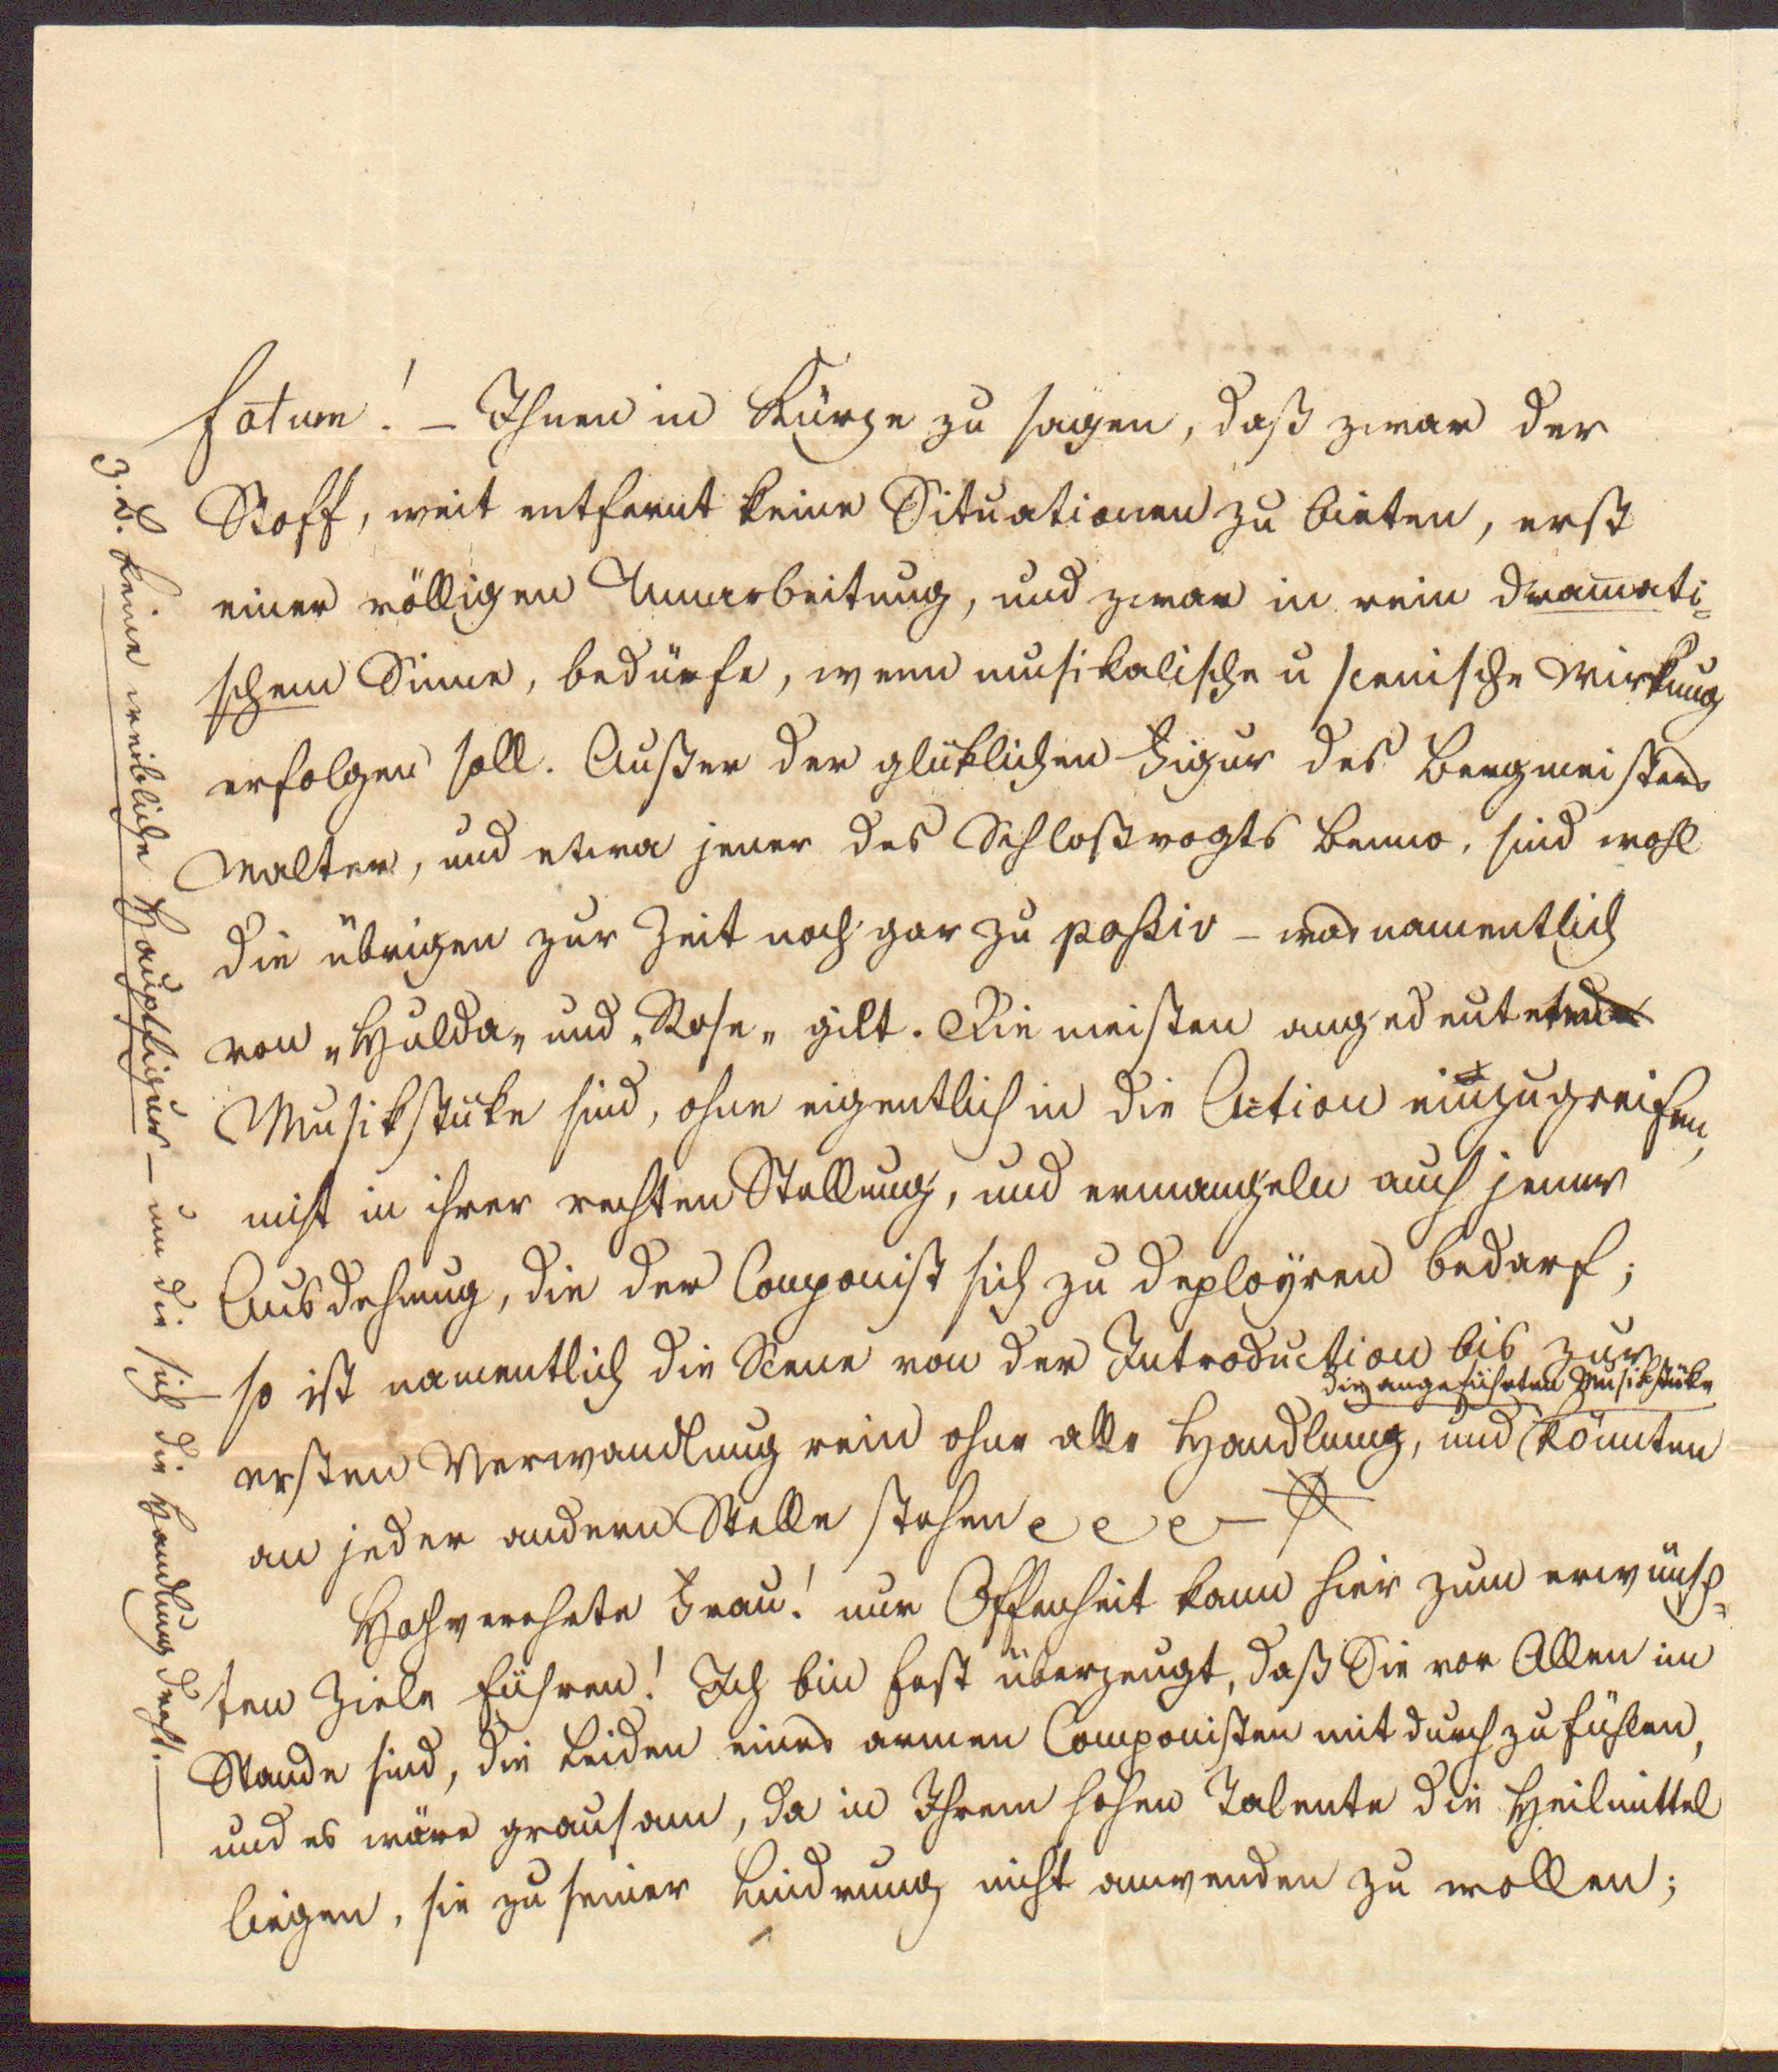 fatum! – Ihnen in Kürze zu sagen, daß zwar der
Stoff, weit entfernt keine Situationen zu bieten, erst
einer völligen Umarbeitung, und zwar in rein dramati=
schem Sinne, bedürfe, wenn musikalische u scenische Wirkung
erfolgen soll. Außer der glüklichen Figur des Bergmeisters
Walter, und etwa jener des Schloßvogts Benno, sind wohl
die übrigen zur Zeit noch gar zu passiv – was namentlich
von „Hulda„ und „Rose„ gilt. Die meisten angedeuteten
Musikstüke sind, ohne eigentlich in die Action einzugreifen,
nicht in ihrer rechten Stellung, und ermangeln auch jener
Ausdehnung, die der Componist sich zu deployren bedarf;
so ist namentlich die Scene von der Introduction bis zur
die angeführten Musikstüke
ersten Verwandlung rein ohne alle Handlung, und könnten
an jeder andern Stelle stehen
Hochverehrte Frau! nur Offenheit kann hier zum erwünsch=
ten Ziele führen! Ich bin fest überzeugt, daß Sie vor Allen im
Stande sind, die Leiden eines armen Componisten mit durchzufühlen,
und es wäre grausam, da in Ihrem hohen Talente die Heilmittel
liegen, sie zu seiner Lindrung nicht anwenden zu wollen;
z. B. keine weibliche Hauptfigur – um die sich die Handlung dreht. –